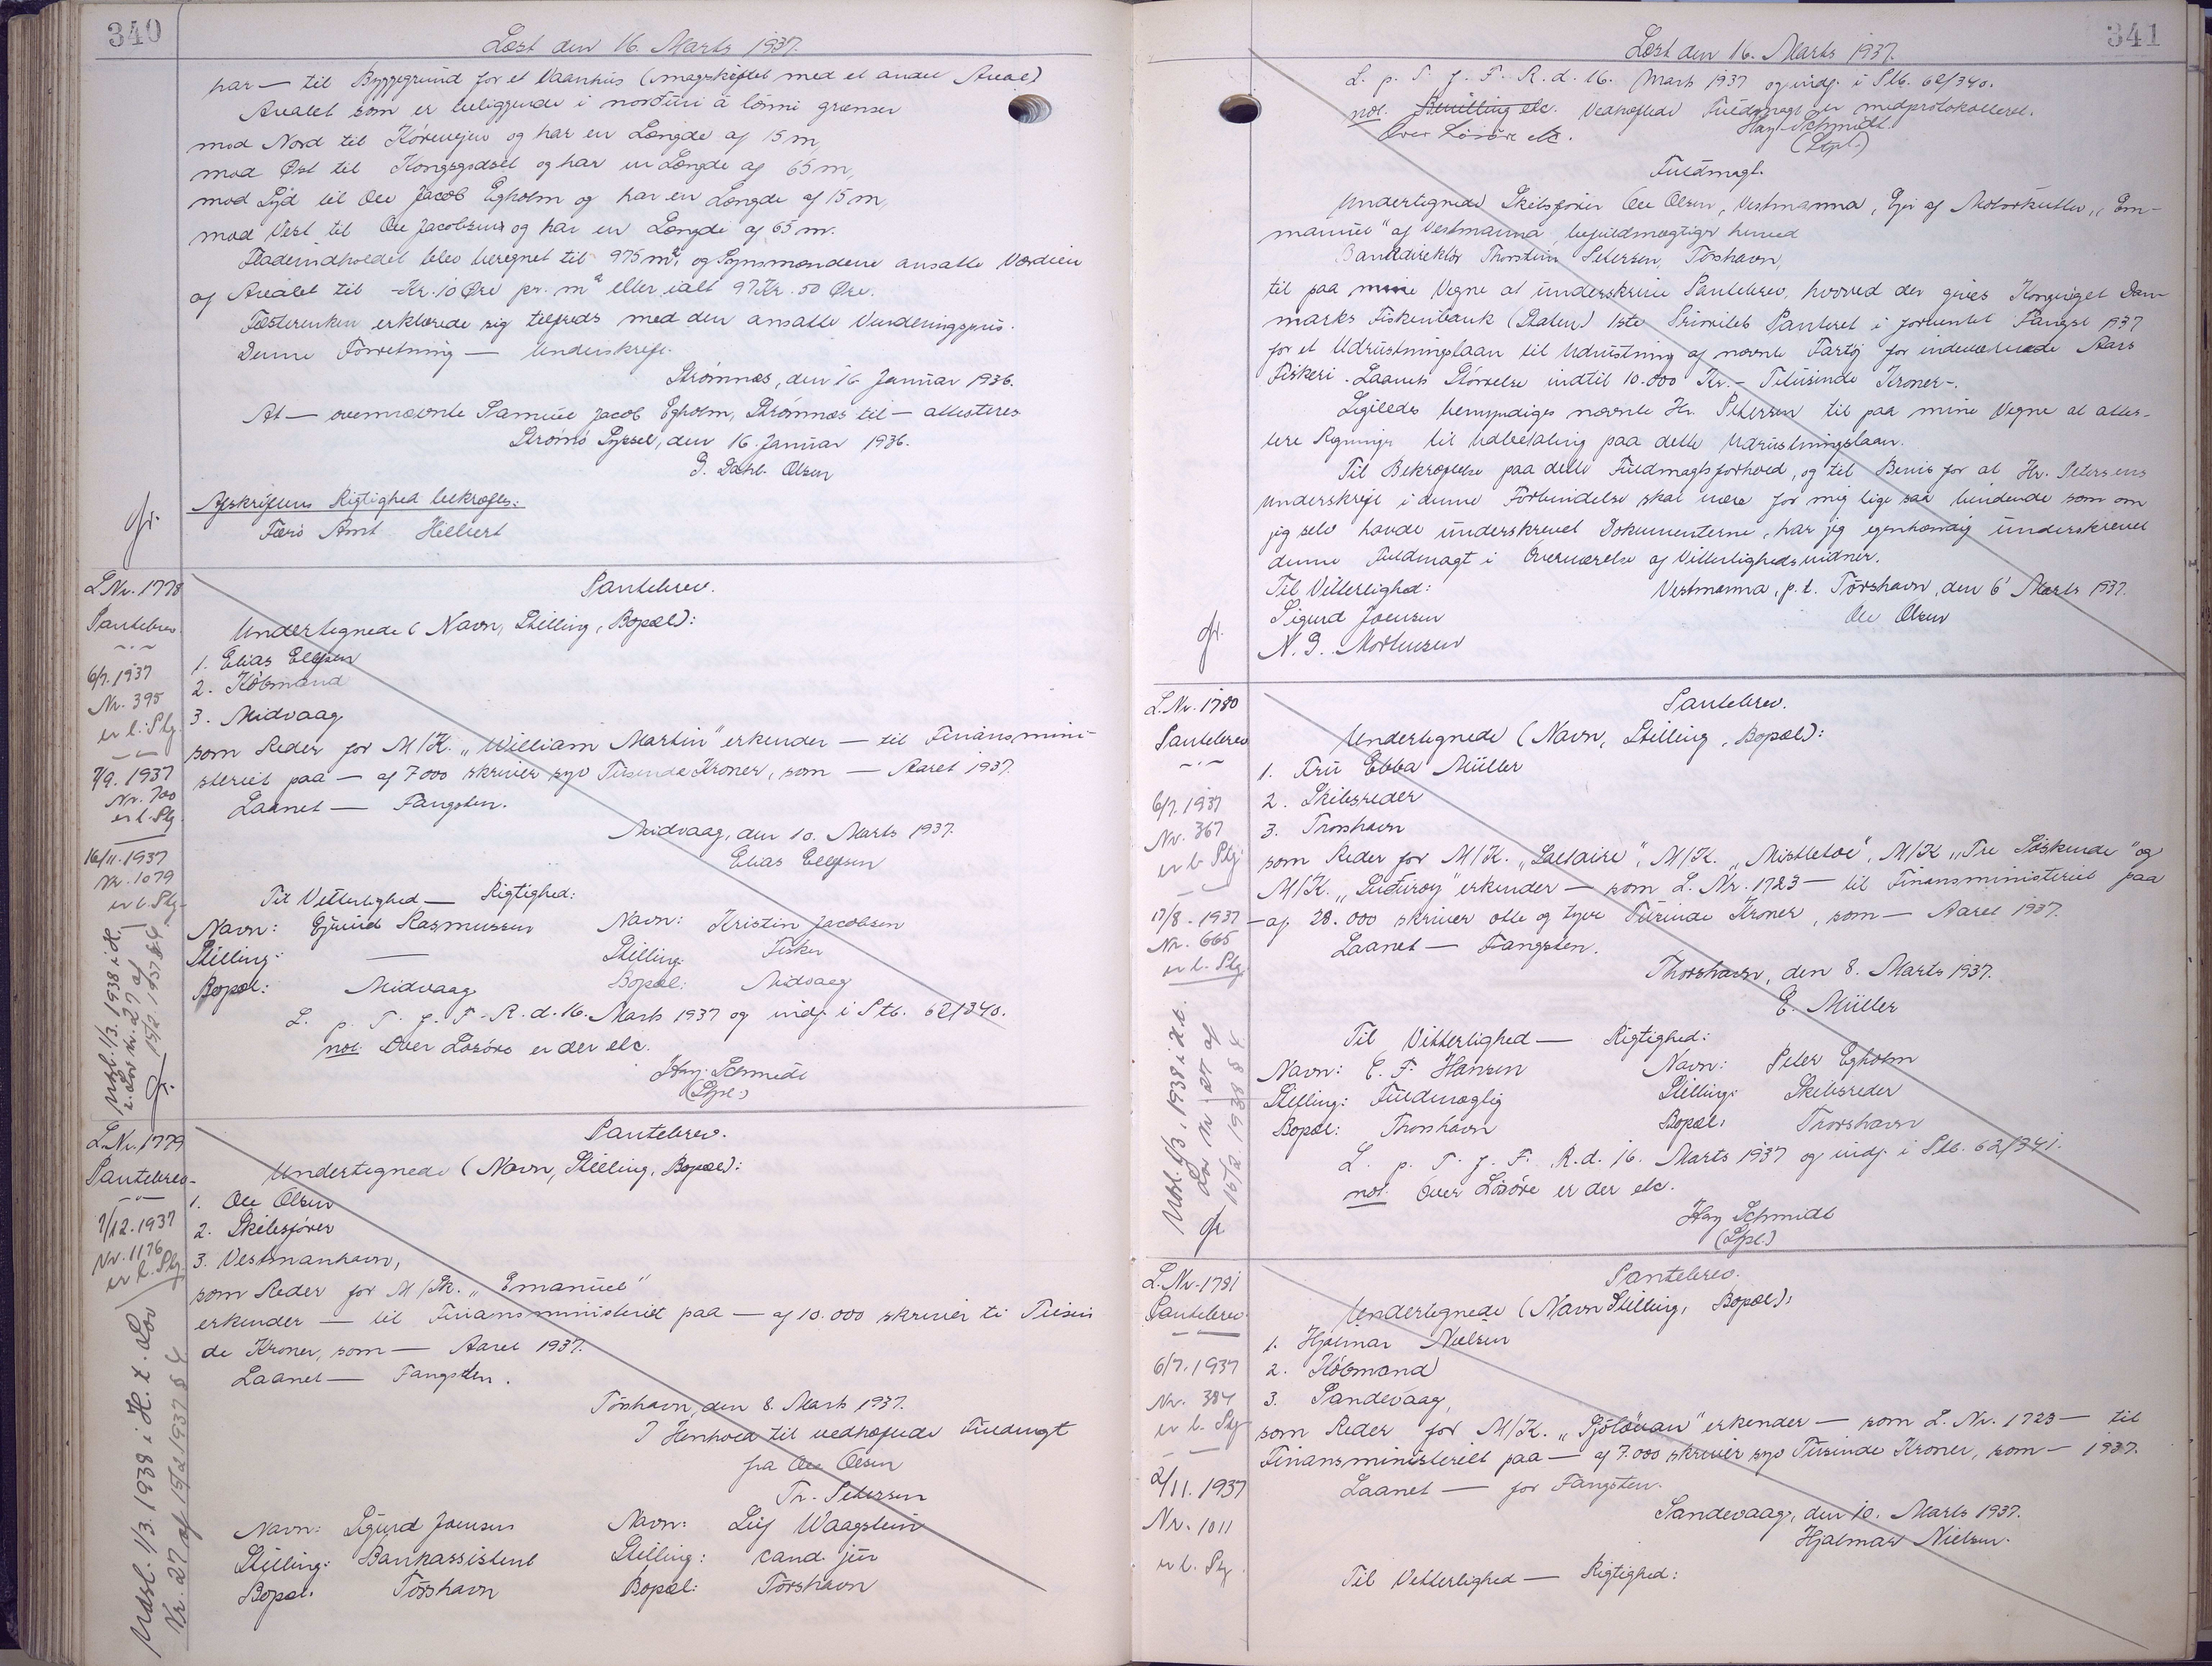 340
Læst den 16. Marts 1937.
har — til Byggegrund for et Vaanhus (mageskiftet med et andet Areal)
Arealet som er beliggende i norðuri á lonni grænser
mod Nord til Kórevejen og har en Længde af 15 m,
mod Øst til Kongsgodset og har en Længde af 65 m,
mod Syd til Ole Jacob Egholm og har en Længde af 15 m,
mod Vest til Ole Jacobsens og har en Længde af 65 m.
Fladeindholdet blev beregnet til 975 m², og Synsmændene ansatte Værdien
af Arealet til -Kr. 10 Øre pr. m² eller ialt 97 Kr. 50 Øre.
Fæsterenken erklærede sig tilfreds med den ansatte Vurderingspris.
Denne Forretning — Underskrift.
Strømnæs, den 16 Januar 1936.
At — ovennævnte Samuel Jacob Egholm, Strømnæs til — attesteres
Strømø Syssel, den 16. Januar 1936.
P. Dahl. Olsen
Afskriftens Rigtighed bekræftes:
Færø Amt Hilbert
Gr.
L.Nr. 1778
Pantebrev
6/7. 1937
Nr. 395
er l. Ptg.
7/9. 1937
Nr. 700
er l. Ptg.
16/11. 1937
Nr. 1079
er l. Ptg.
Udsl. 1/3. 1938 i H.
t. Lov Nr. 27 af
15/2. 1937 § 4
Gr.
Pantebrev.
Undertegnede (Navn, Stilling, Bopæl):
1. Elias Ellefsen
2. Købmand
3. Midvaag
som Reder for M/K. „William Martin" erkender — til Finansmini-
steriet paa — af 7000 skriver syv Tusinde Kroner, som — Aaret 1937.
Laanet — Fangsten.
Midvaag, den 10. Marts 1937.
Elias Ellefsen
Til Vitterlighed — Rigtighed:
Navn: Ejvind Rasmussen Navn: Kristin Jacobsen
Stilling: — Stilling: Fisker
Bopæl: Midvaag Bopæl: Midvaag
L. p. T. f. F. R. d. 16. Marts 1937 og indf. i Ptb. 62/340.
not. Over Løsøre er der etc.
Hay-Schmidt
(Stpl.)
L.Nr. 1779
Pantebrev
7/12. 1937
Nr. 1176
er l. Ptg.
Udsl. 1/3. 1938 i H. t. Lov
Nr. 27 af 15/2 1937 § 4
Pantebrev.
Undertegnede (Navn, Stilling, Bopæl):
1. Ole Olsen
2. Skibsfører
3. Vestmanhavn,
som Reder for M/Sk. „Emanuel"
erkender — til Finansministeriet paa — af 10.000 skriver ti Tusin
de Kroner, som — Aaret 1937.
Laanet — Fangsten.
Tórshavn, den 8. Marts 1937.
I Henhold til vedhæftede Fuldmagt
fra Ole Olsen
Th. Petersen
Navn: Sigurd Joensen Navn: Leif Waagstein
Stilling: Bankassistent Stilling: cand. jur
Bopæl: Tórshavn Bopæl: Tórshavn
341
Læst den 16. Marts 1937.
L. p. T. f. F. R. d. 16. Marts 1937 og indf. i Ptb. 62/340.
not. Bevilling etc. Vedhæftede Fuldmagt er medprotokolleret.
Over Løsøre etc. Hay-Schmidt.
(Stpl.)
Fuldmagt.
Undertegnede Skibsfører Ole Olsen, Vestmanna, Ejer af Motorkutter „Em-
manuel" af Vestmanna, befuldmægtiger herved
Bankdirektør Thorstein Petersen, Tórshavn,
til paa mine Vegne at underskrive Pantebrev, hvorved der gives Kongeriget Dan-
marks Fiskeribank (Staten) 1ste Prioritets Panteret i forventet Fangst 1937
for et Udrustningslaan til Udrustning af nævnte Fartøj for indeværende Aars
Fiskeri. Laanets Størrelse indtil 10.000 Kr. - Titusinde Kroner -.
Ligeledes bemyndiges nævnte Hr. Petersen til paa mine Vegne at attes-
tere Regninger til Udbetaling paa dette Udrustningslaan.
Til Bekræftelse paa dette Fuldmagtsforhold, og til Bevis for at Hr. Petersens
Underskrift i denne Forbindelse skal være for mig lige saa bindende som om
jeg selv havde underskrevet Dokumenterne, har jeg egenhændig underskrevet
denne Fuldmagt i Overværelse af Vitterlighedsvidner.
Til Vitterlighed: Vestmanna, p.t. Tórshavn, den 6' Marts 1937.
Sigurd Joensen Ole Olsen
N. J. Mortensen
Gr.
L.Nr. 1780
Pantebrev
6/7. 1937
Nr. 367
er l. Ptg.
17/8. 1937
Nr. 665
er l. Ptg.
Udsl. 1/3. 1938 i H. t.
Lov Nr. 27 af
15/2. 1938 § 4
Gr
Pantebrev.
Undertegnede (Navn, Stilling, Bopæl):
1. Fru Ebba Müller
2. Skibsreder
3. Thorshavn
som Reder for M/K. „Laclaire", M/K. „Mistletoe", M/K „Tre Søskende" og
M/K. „Suðuroy" erkender — som L. Nr. 1723 — til Finansministeriet paa
— af 28.000 skriver otte og tyve Tusinde Kroner, som — Aaret 1937.
Laanet — Fangsten.
Thorshavn, den 8. Marts 1937.
E. Müller
Til Vitterlighed — Rigtighed:
Navn: C. F. Hansen Navn: Peter Egholm
Stilling: Fuldmægtig Stilling: Skibsreder
Bopæl: Thorshavn Bopæl: Thorshavn
L. p. T. f. F. R. d. 16. Marts 1937 og indf. i Ptb. 62/341.
not. Over Løsøre er der etc.
Hay Schmidt
(Stpl.)
L.Nr. 1781
Pantebrev
6/7. 1937
Nr. 384
er l. Ptg
2/11. 1937
Nr. 1011
er l. Ptg.
Pantebrev.
Undertegnede (Navn Stilling, Bopæl):
1. Hjalmar Nielsen
2. Købmand
3. Sandevaag,
som Reder for M/K. „Sjólövan" erkender — som L. Nr. 1723 — til
Finansministeriet paa — af 7.000 skriver syv Tusinde Kroner, som — 1937.
Laanet — for Fangsten.
Sandevaag, den 10. Marts 1937.
Hjalmar Nielsen.
Til Vitterlighed — Rigtighed: